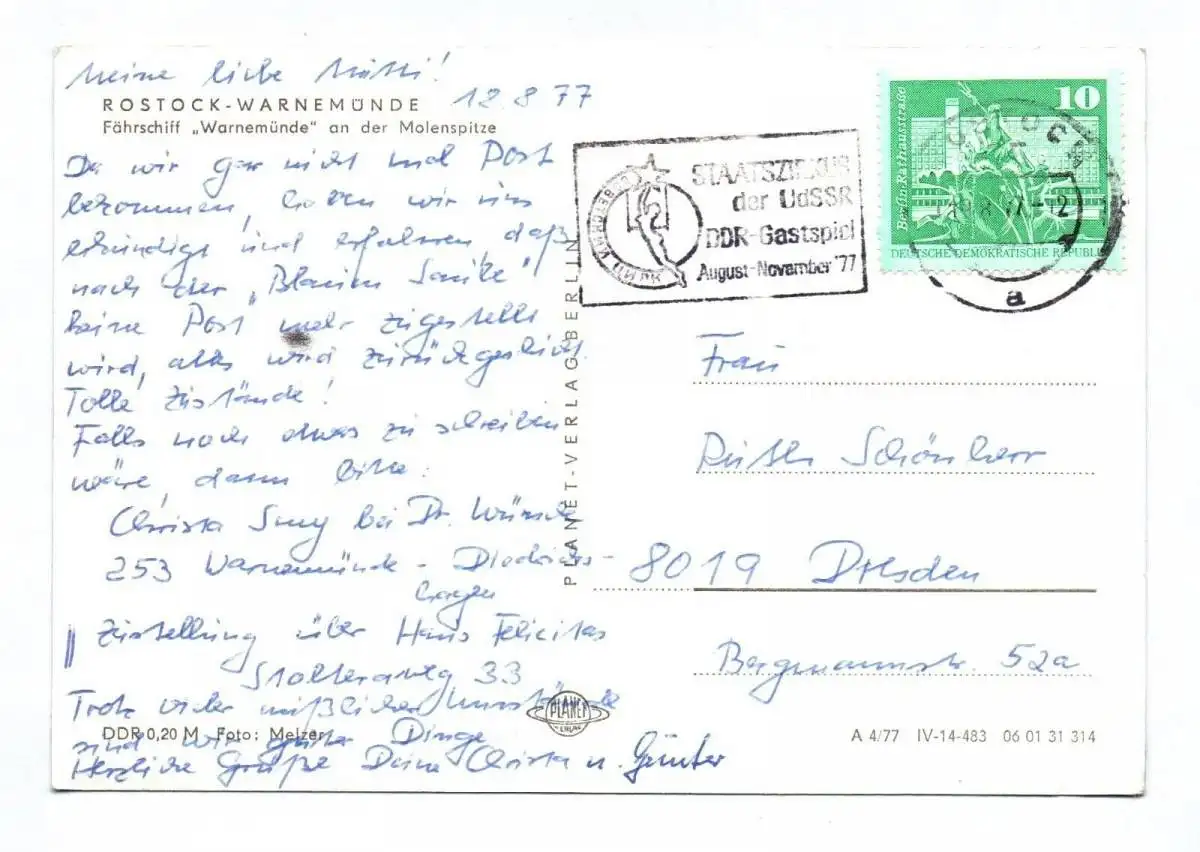 Meine liebe Mutti!
12.8.77
ROSTOCK-WARNEMÜNDE
Fährschiff „Warnemünde“ an der Molenspitze
Da wir gar nicht mal Post
bekommen, haben wir uns
erkundigt und erfahren, daß
nach der „Blauen
keine Post mehr zugestellt
wird, alles wird zurückgeschickt.
Tolle Zustände!
Falls noch etwas zu schreiben
wäre, dann bitte:
Christa bei Dr. Wünsch
253 Warnemünde - Diedrichs-
hagen
Zustellung über Haus Felicitas
Stolteraweg 33
Trotz vieler mißlicher Umstände
sind wir guter Dinge
Herzliche Grüße Deine Christa u. Günter
DDR 0,20 M Foto: Melzer
PLANET-VERLAG BERLIN
PLANET
VERLAG
STAATSZIRKUS
der UdSSR
DDR-Gastspiel
August-November '77
10
Berlin·Rathausstraße
DEUTSCHE DEMOKRATISCHE REPUBLIK
ROSTOCK
a
Frau
Ruth Schönherr
8019 Dresden
Bergmannstr. 52a
A 4/77 IV-14-483 06 01 31 314